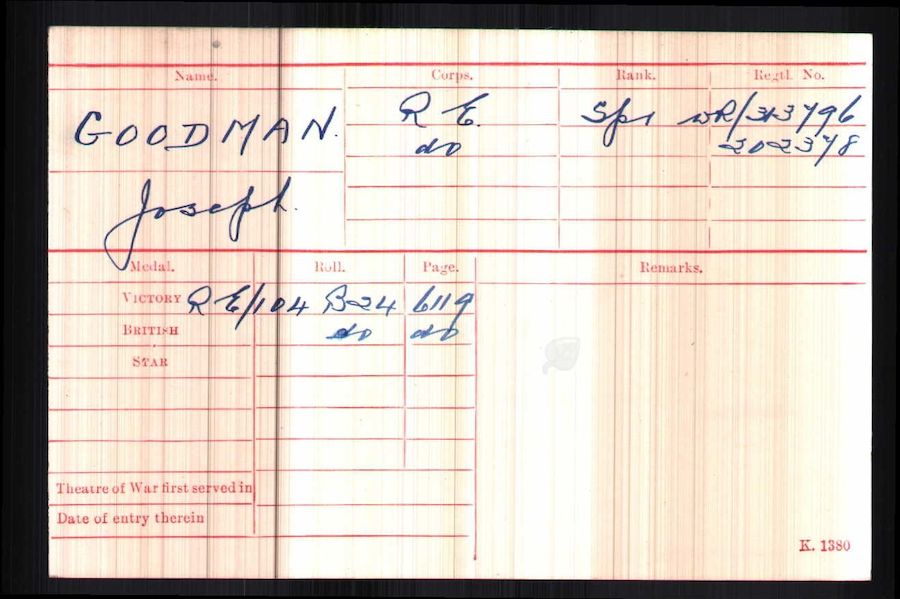 Name. Corps. Rank. Regtl. No.
GOODMAN. R E. Spr WR/313796
do 202378
Joseph.
Medal. Roll. Page. Remarks.
VICTORY RE/104 B24 6119
BRITISH do do
STAR
Theatre of War first served in
Date of entry therein
K. 1380